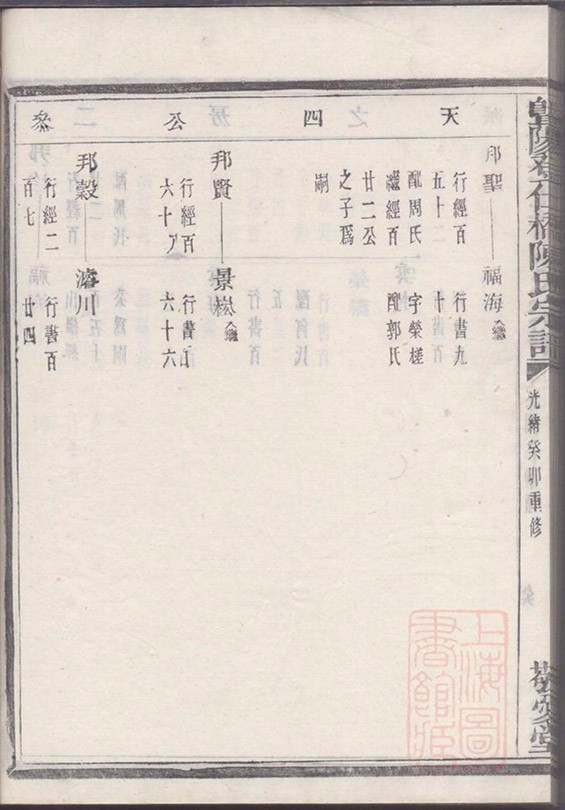 暨陽仁橋陳氏宗譜
光緒癸卯重修
敬愛堂
天 四 公 叅
邦聖 福海入繼
行經百 行書九
五十二 十
配周氏 字榮槎
繼經百 配郭氏
廿二公
之子爲
嗣
邦賢 景崧入繼
行經百 行書百
六十八 六十六
邦穀 濬川
行經二 行書百
百七 廿四
上海圖
書館藏